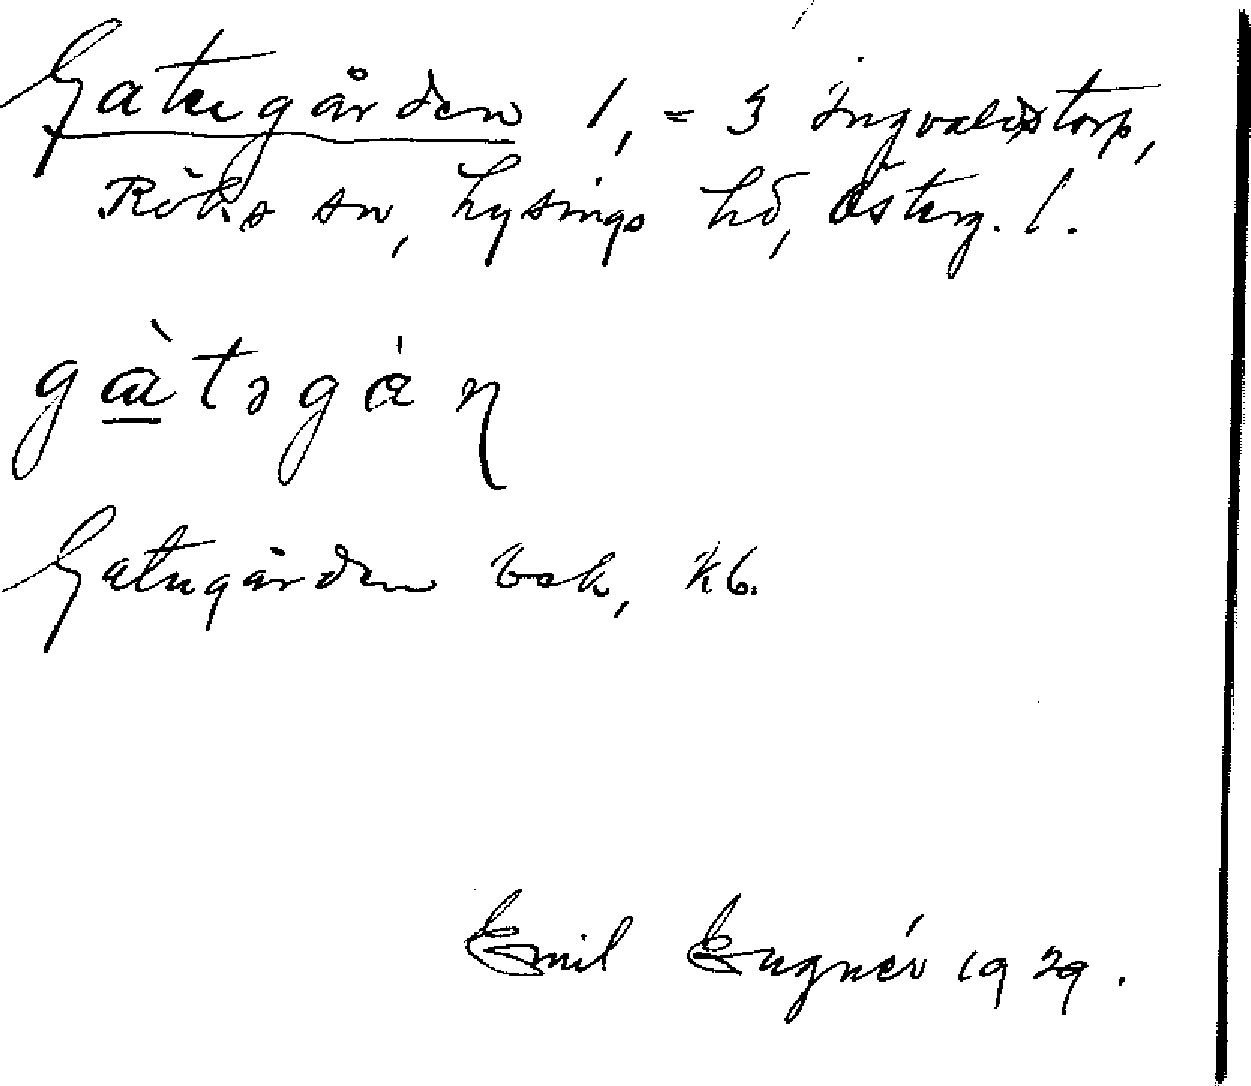 Gatugården 1, = 3 Ingvaldstorp,
Röks sn, Lysings hd, Österg. l.
gàtəgá̇ɳ
Gatugården bsk, kb.
Emil Eugnér 1929.